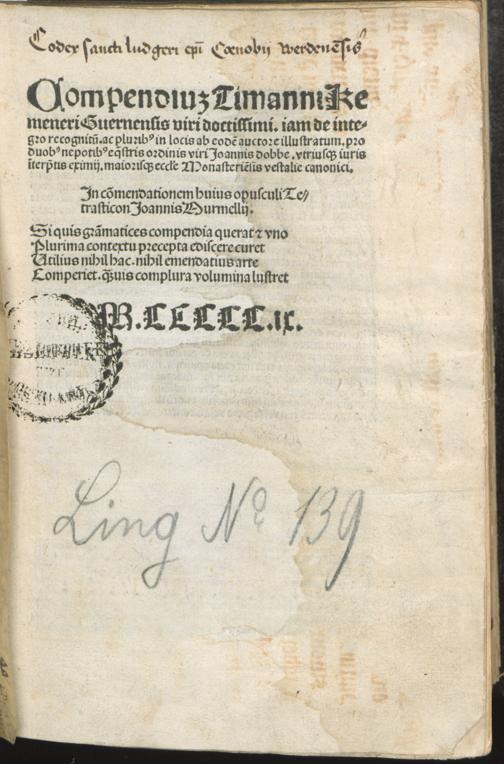 Codex sancti ludgeri ep̄i Cœnobij werdenēsis
Compendiuꝫ Timanni Ke
meneri Guernensis viri doctissimi. iam de inte-
gro recognitū. ac plurib⁹ in locis ab eodē auctore illustratum. pro
duob⁹ nepotib⁹ eq̄stris ordinis viri Joannis dobbe. vtriusqꝫ iuris
īterp̄tis eximij, maiorisqꝫ eccl̄e Monasteriēsis vestalie canonici.
In cōmendationem huius opusculi Te/
trasticon Joannis Murmellij.
Si quis grāmatices compendia querat ⁊ vno
Plurima contextu precepta ediscere curet
Utilius nihil hac. nihil emendatius arte
Comperiet. q̄ꝫuis complura volumina lustret
M.CCCCC.ix.
Ling Nº 139